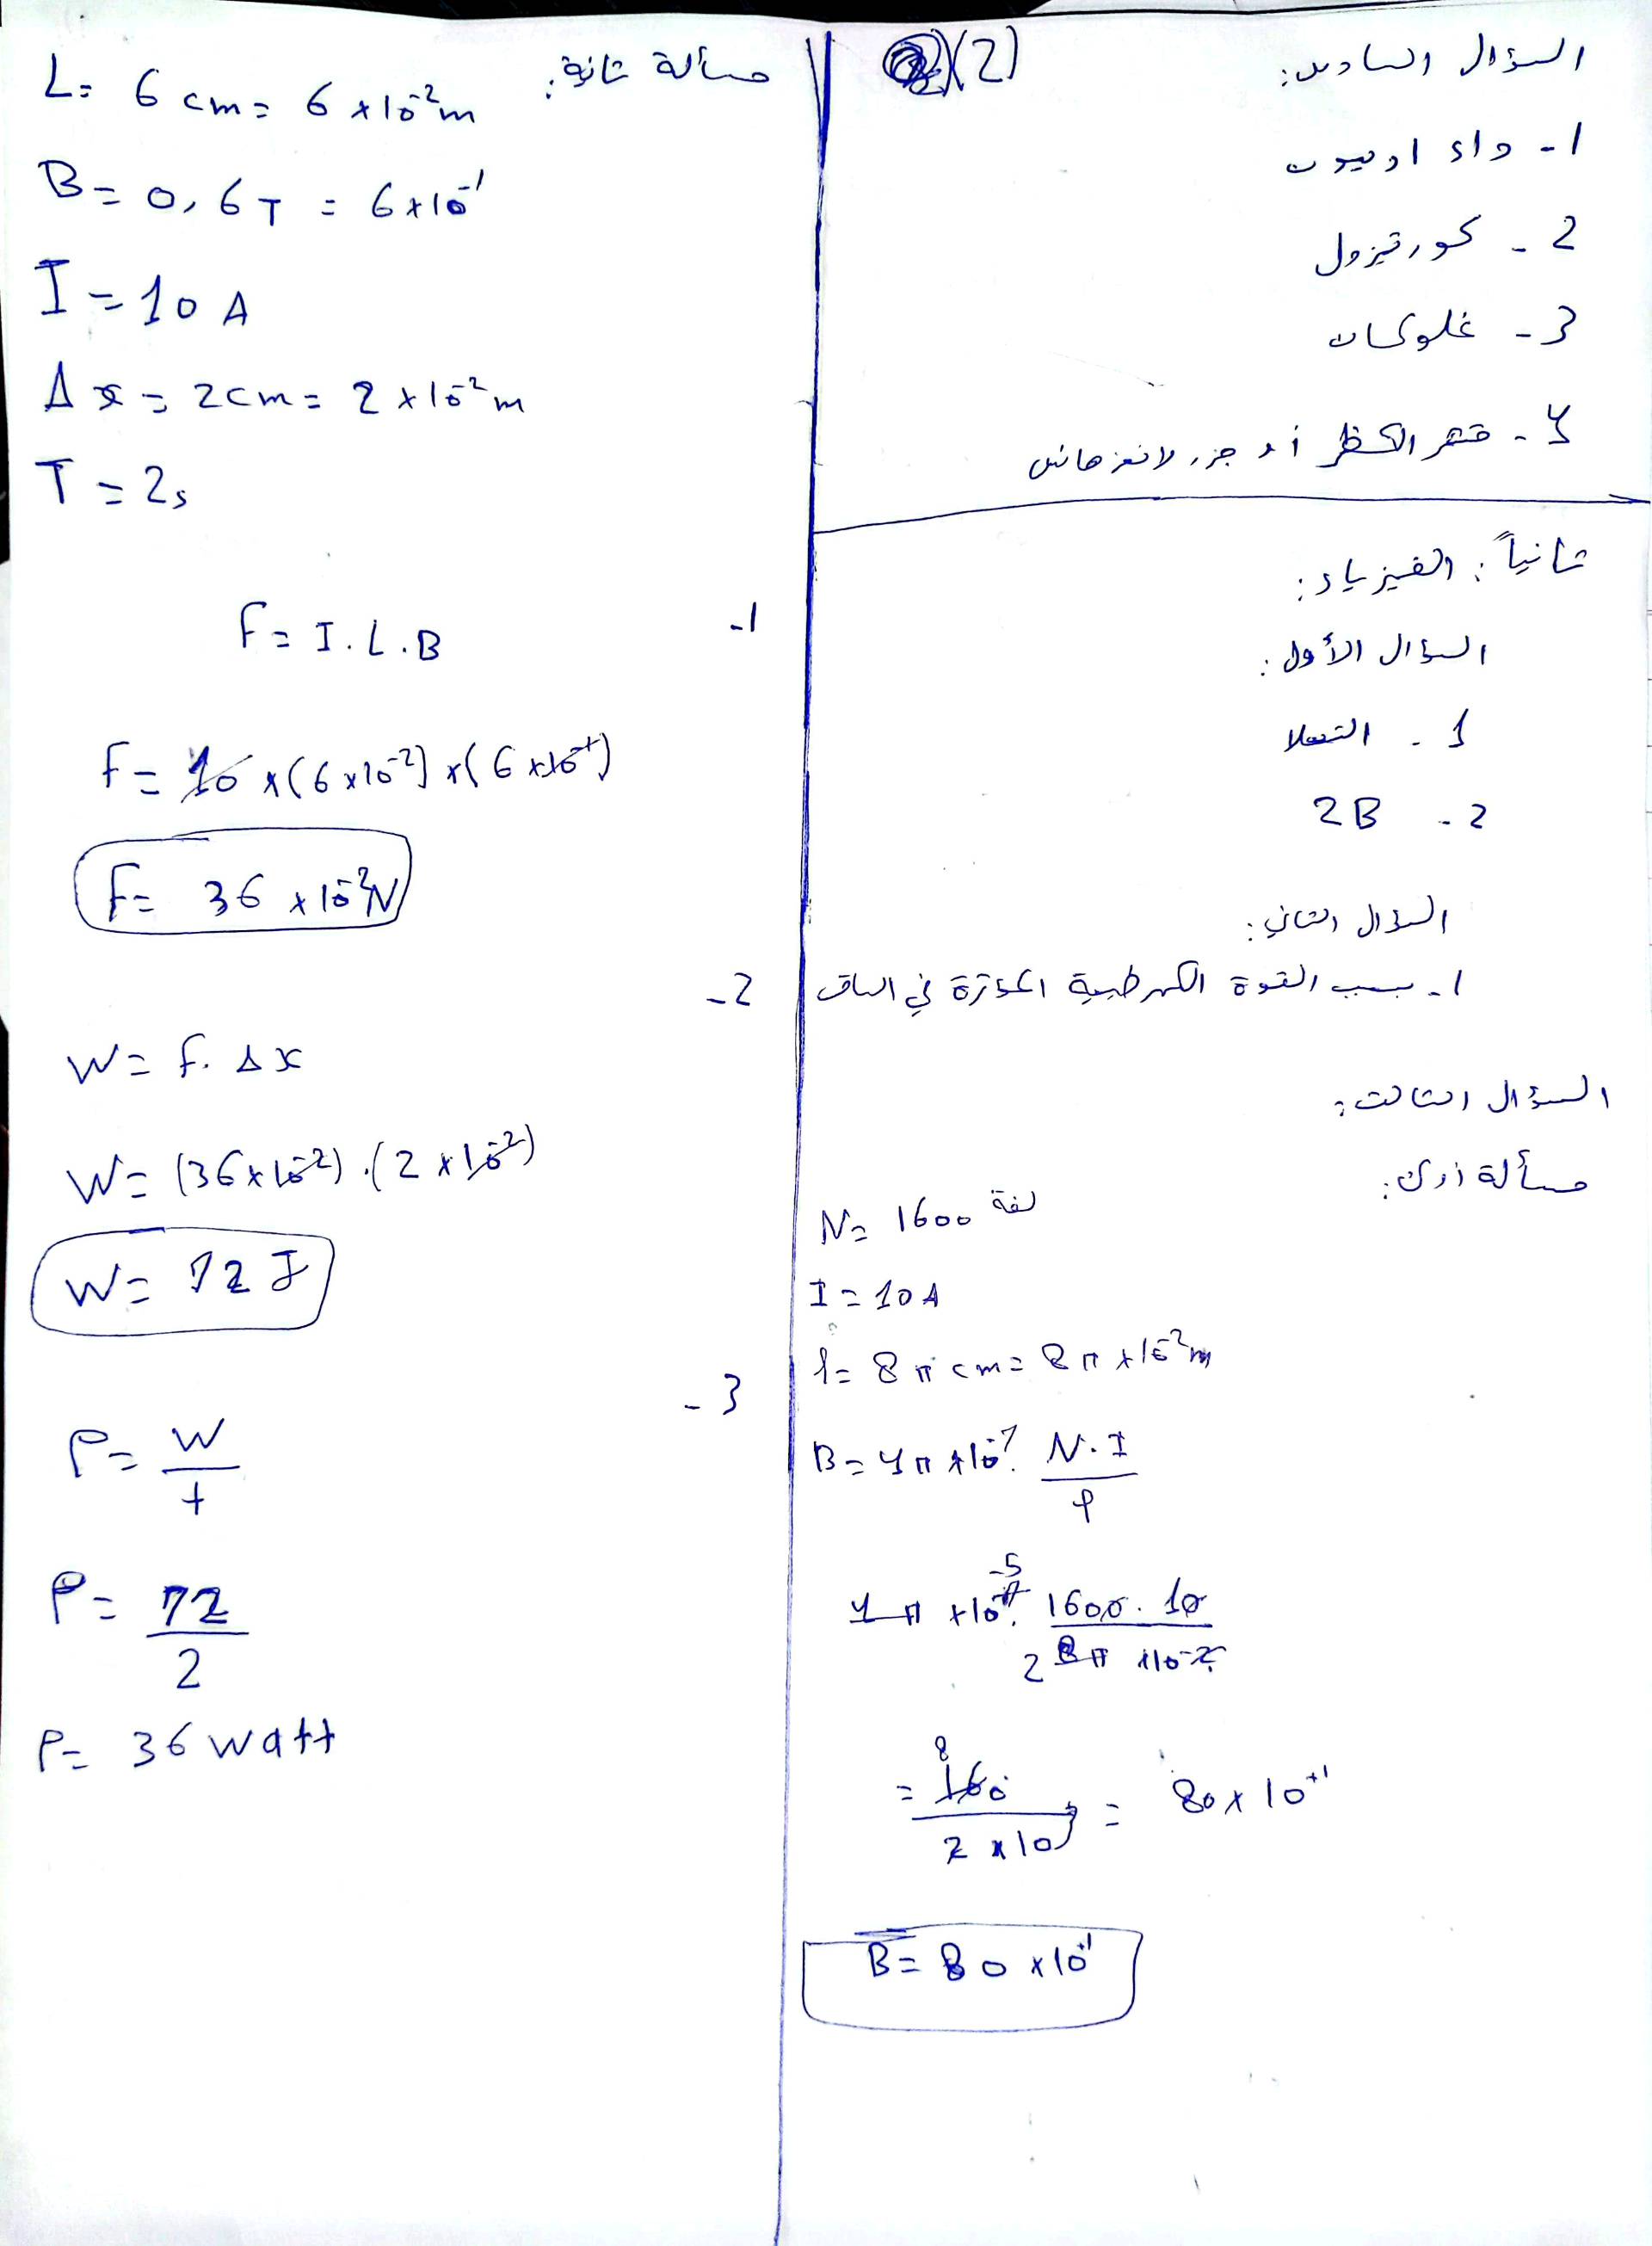 (2)
السؤال السادس:
1- داء اديسون
2- كورتيزول
3- غلوكات
4- قشر الكظر أو جزر لانغرهانس
ثانياً: الفيزياء:
السؤال الأول:
1- التسلا
2- 2B
السؤال الثاني:
1- بسبب القوة الكهرطيسية المؤثرة في الساق
السؤال الثالث:
مسألة أولى:
N = 1600 لفة
I = 10 A
l = 8π cm = 8π × 10⁻² m
B = 4π × 10⁻⁷ . N.I / l
4π × 10⁻⁵ . 1600 . 10 / 2 8π × 10⁻²
= 160 / 2 × 10 = 80 × 10⁺¹
B = 80 × 10⁺¹
مسألة ثانية:
L = 6 cm = 6 × 10⁻² m
B = 0,6 T = 6 × 10⁻¹
I = 10 A
Δx = 2cm = 2 × 10⁻² m
T = 2s
1-
F = I . L . B
F = 10 × (6 × 10⁻²) × (6 × 10⁻¹)
F = 36 × 10⁻² N
2-
W = F . Δx
W = (36 × 10⁻²) . (2 × 10⁻²)
W = 72 J
3-
P = W / t
P = 72 / 2
P = 36 watt